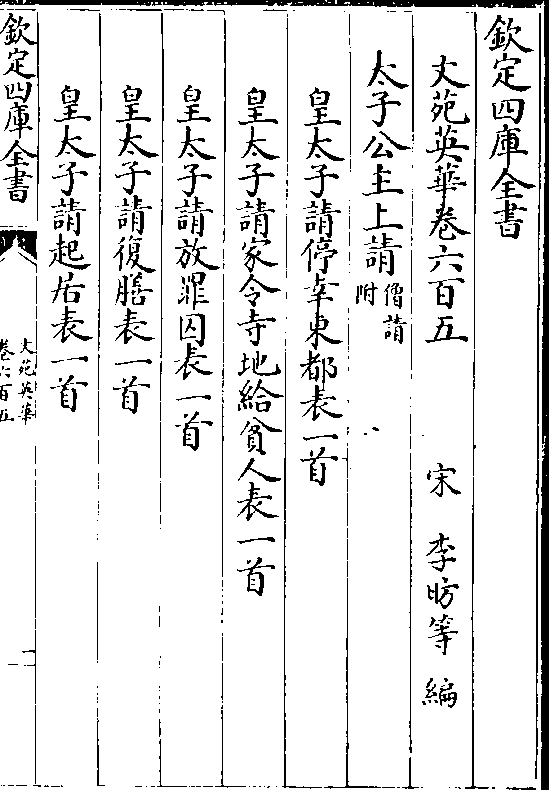 欽定四庫全書
文苑英華卷六百五
宋 李昉等 編
太子公主上請僧請附
皇太子請停幸東都表一首
皇太子請家令寺地給貧人表一首
皇太子請放罪囚表一首
皇太子請復膳表一首
皇太子請起居表一首
欽定四庫全書
文苑英華
卷六百五
一